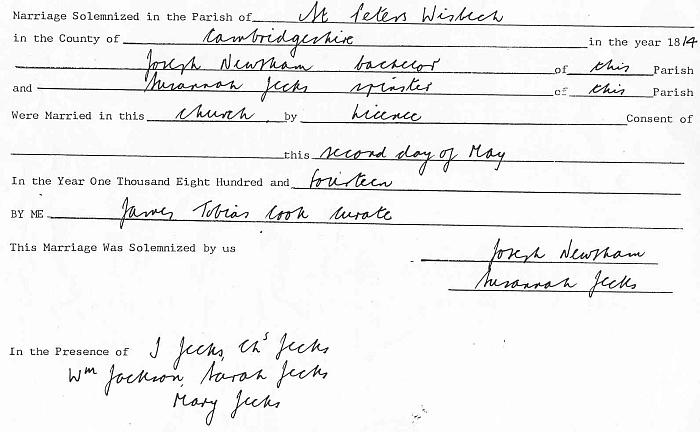 Marriage Solemnized in the Parish of St Peters Wisbech
in the County of Cambridgeshire in the year 1814
Joseph Newsham bachelor of this Parish
and Susannah Jecks spinster of this Parish
Were Married in this church by Licence Consent of
this second day of May
In the Year One Thousand Eight Hundred and fourteen
BY ME James Tobias Cook Curate
This Marriage Was Solemnized by us Joseph Newsham
Susannah Jecks
In the Presence of J Jecks, Chs Jecks
Wm Jackson, Sarah Jecks
Mary Jecks